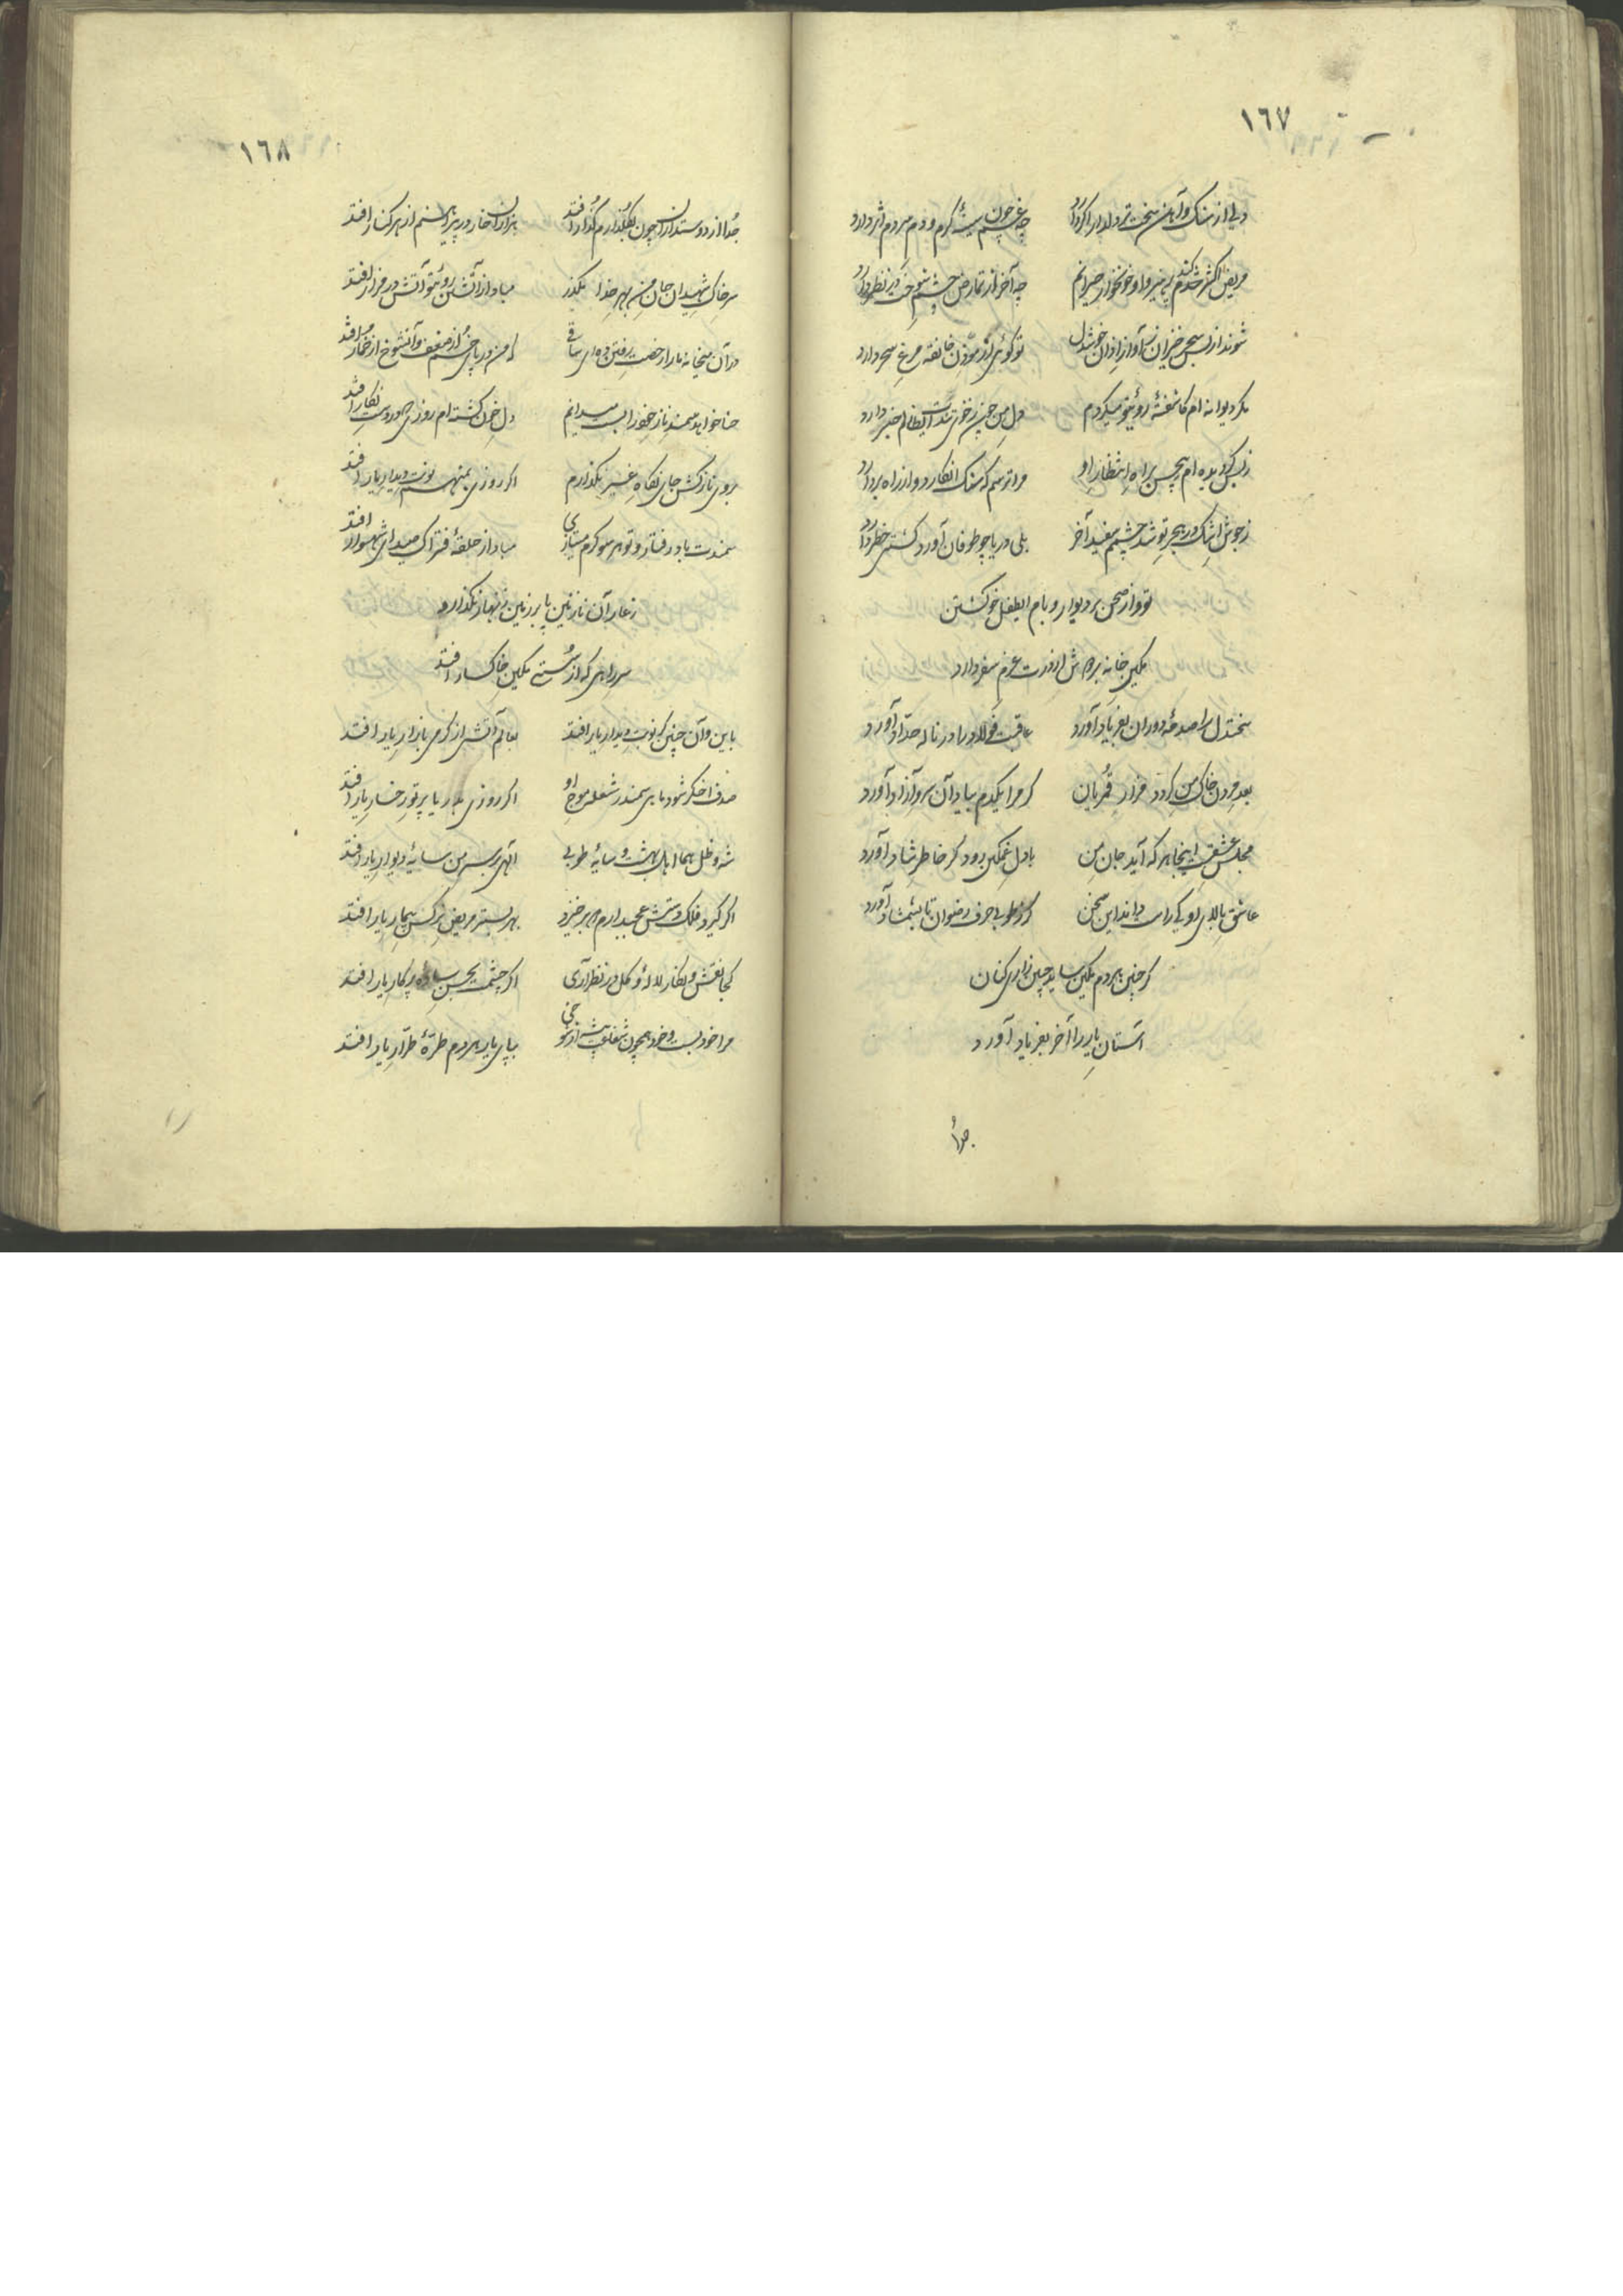 ١٦٧
دلی از سنک و آهن سخت تر دلدار اگر دارد
چه غم چون شیشهٔ گرم و دم سردم اثر دارد
مریض اکثر کند پرهیز و او خونخوار حیرانم
چه آخر از تمارض چشم شوخت در نظر دارد
شوند از بس سحر خیزان ز آواز اذان خوشدل
تو گوئی از مؤذن خانقه مرغ سحر دارد
مکر دیوانه ام کاشفتهٔ روی تو میکردم
دل من چین زخوی تندت ایظالم خبر دارد
زبس کردیده ام بیحس براه انتظار او
مرا ترسم که سنک انکارد و از راه بردارد
زجوش اشک در هجر تو شد چشمم سفید آخر
بلی دریا چو طوفان آورد کشتی خطر دارد
تو و از صحن بر دیوار و بام ایطفل خو کشتن
مکین خانه بردوش از درت عزم سفر دارد
سختدل را صدمهٔ دوران بفریاد آورد
عاقبت فولاد را در ناله حدّاد آورد
بعد مردن خاک من کردد مزار قمریان
کر مرا یکدم بیاد آن سرو آزاد آورد
مجلس عشقست اینجا هر که آید جان من
با دل غمکین رود کر خاطر شاد آورد
عاشق بالای او کی راست داند این سخن
کر ز طوبی حرف رضوان تا بشمشاد آورد
کر چنین هر دم مکین ساید جبین زاری کنان
آستان یار را آخر بفریاد آورد
جدا
١٦٨
جدا از دوستداران چون بکلزارم گذار افتد
هزاران خار در پیراهنم از هر کنار افتد
سر خاک شهیدان جان من بهر خدا مکذر
مبادا ز آتشن روی تو آتش در مزار افتد
در آن میخانه ما را رخصت رفتن ده ای ساقی
که من در پای خم از ضعف و آنشوخ از خمار افتد
حنا خواهد سمند ناز خود را لب میدانم
دل خون کشته ام روزی در دست نکار افتد
بروی نازکش جای نکاه غیر نکذارم
اکر روزی بمنهم نوبت دیدار یار افتد
سمندت باد رفتار و تو هر سو کرم میتازی
مبادا ز حلقهٔ فتراک صیدای شهسوار افتد
زعار آن نازنین پا بر زمین زنهار نکذارد
سر راهی که از سستی مکین خاکسار افتد
باین و آن چنین کر نوبت دیدار یار افتد
بعالم آتش از کرمی بازار یار افتد
صدف اخکر شود ماهی سمندر شعله موج او
اکر روزی بدریا پرتو رخسار یار افتد
شه و ظل هما اهل بهشت و سایهٔ طوبی
الهی بر سر من سایهٔ دیوار یار افتد
اکر کیرد فلک دستش عجب دارم که برخیزد
بهر بستر مریض نرکس بیمار یار افتد
کجا نقش و نکار لاله و کل در نظر آری
اکر چشمت بحسن سادهٔ پرکار یار افتد
مرا خود بست و خود همچون شفاعت پیشه از شوخی
بپای یار هر دم طرّهٔ طرّار یار افتد